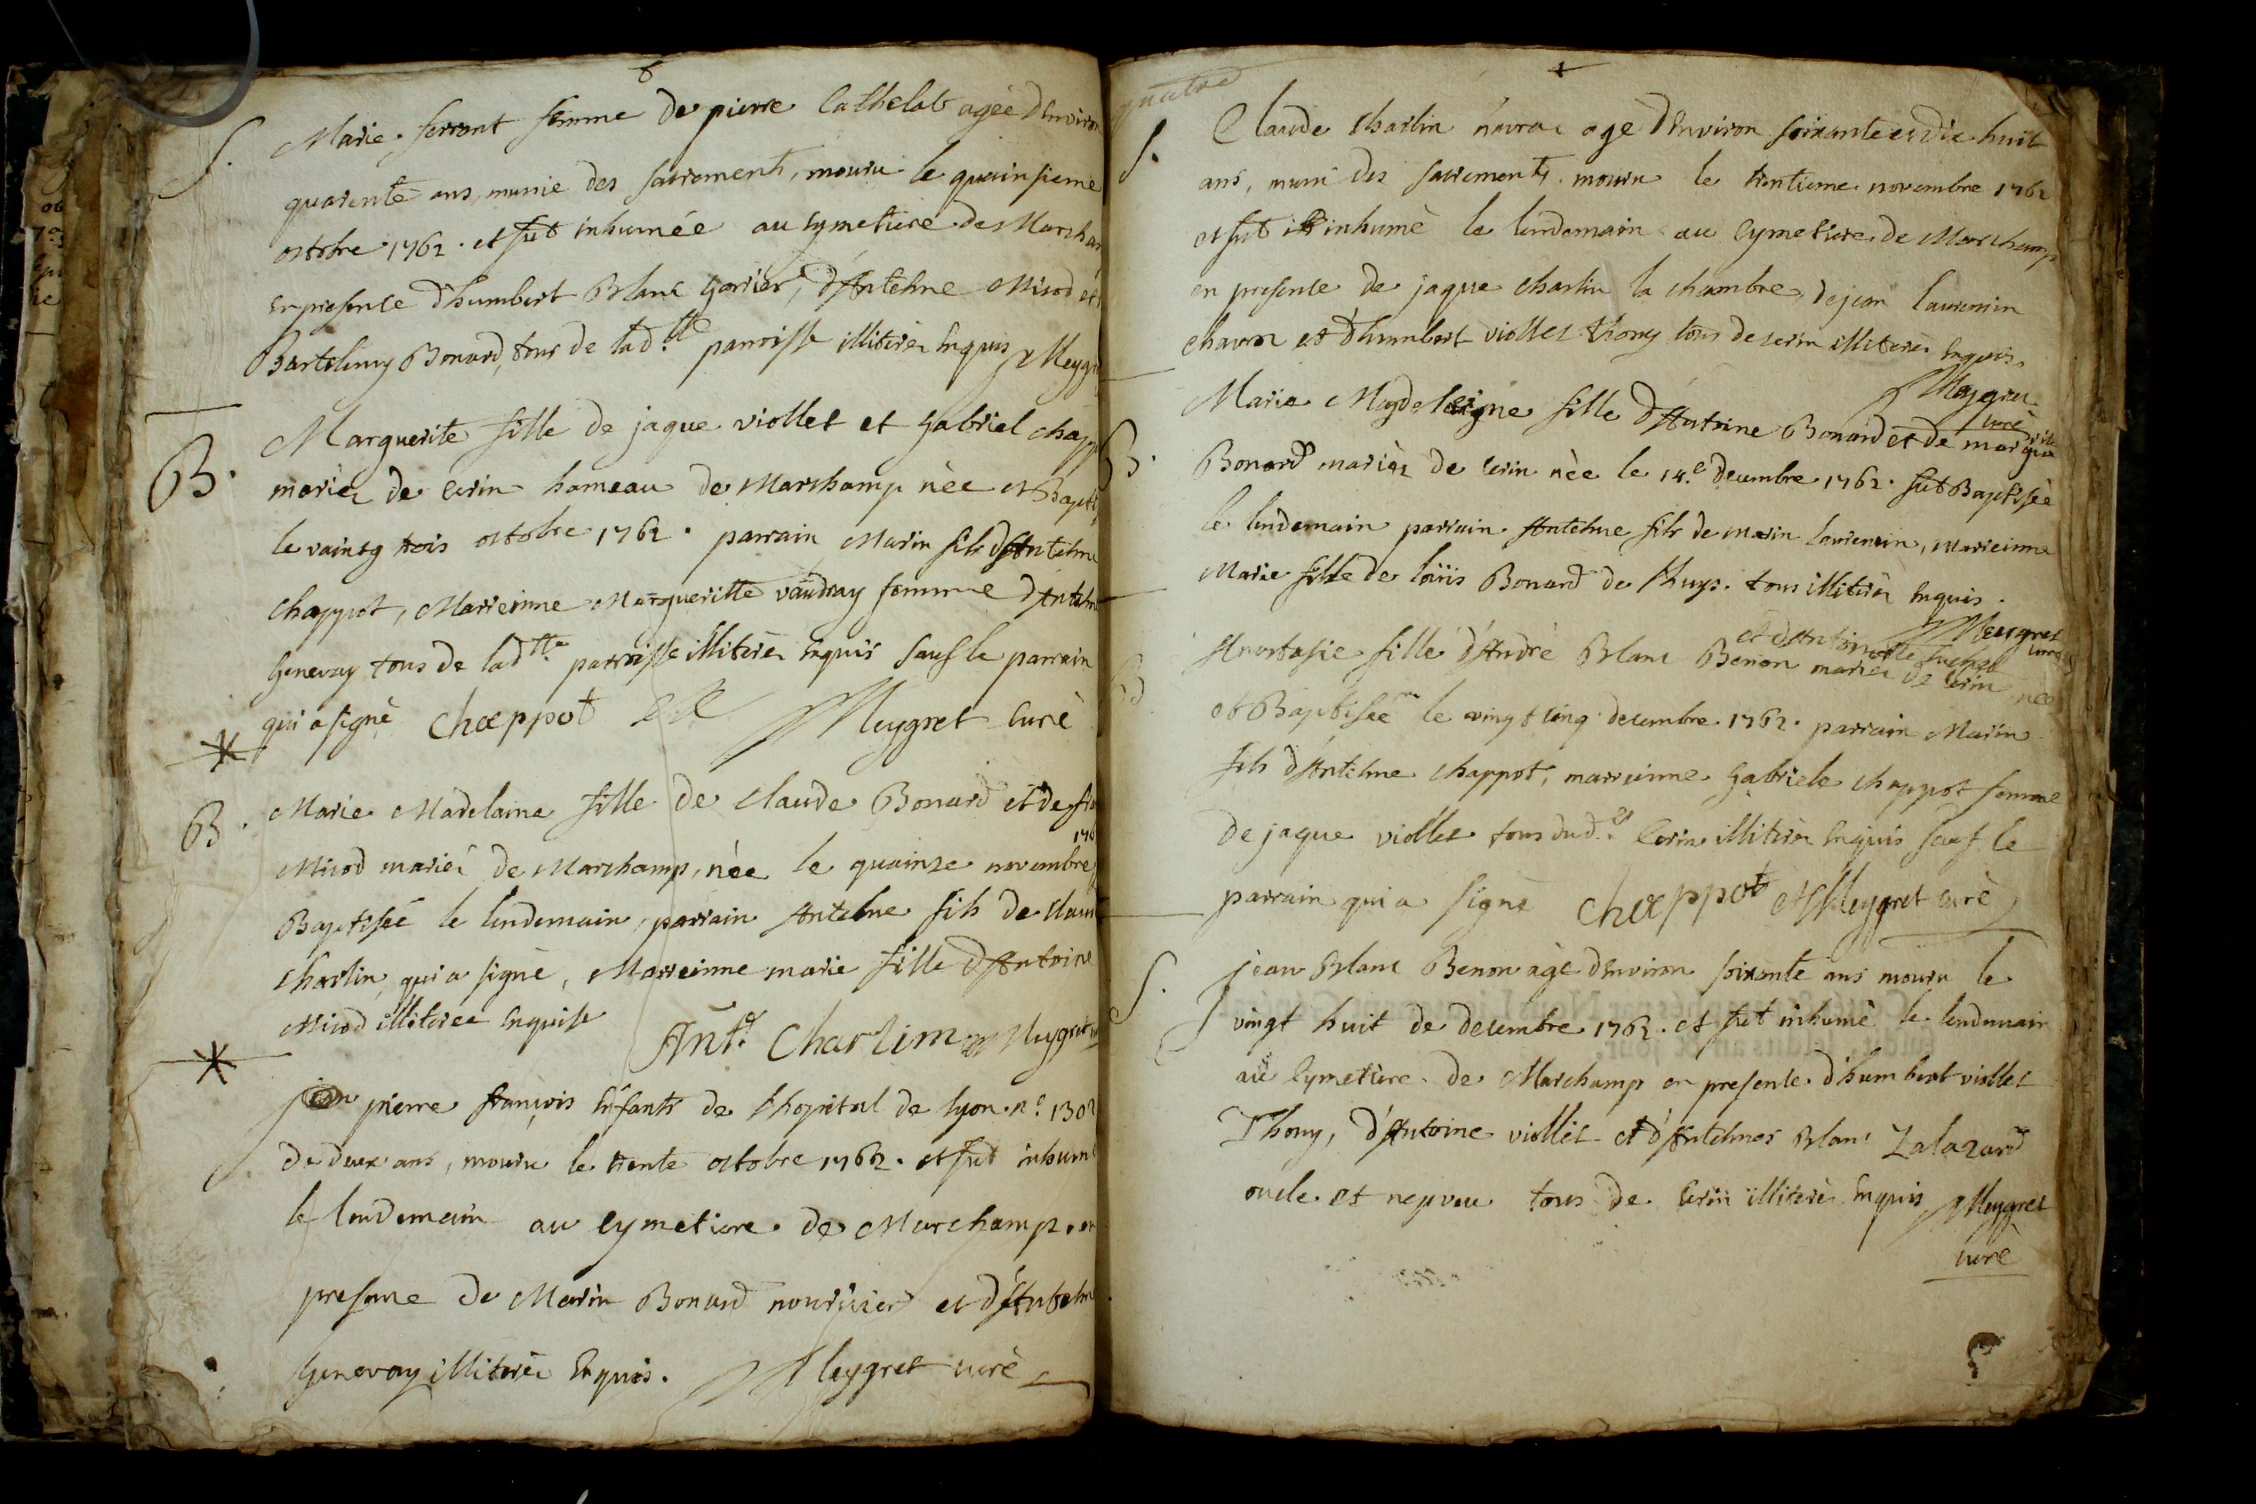 S. Marie ferrant femme de pierre Cathelat agée d'Environ
quarente ans, munie des sacrements, mouru le quainsieme
octobre 1762. et fut inhumée au cymetiere de Marcham
en presence d'humbert Blanc , d'Antelme Micod et
Bartelemy Bonard, tous de lad.tte parroisse illiterés Enquis Meygr
B. Marguerite fille de jaque viollet et Gabriel chapp
mariés de Cerin hameau de Marchamp née et Bapt
le vaintg trois octobre 1762. parrain Marin fils d'Antelme
chappot, Marreinne Margueritte vaudray femme d'Antelm
Genevay tous de lad.tte parroisse illiterés Enquis sauf le parrain
qui a signé Chappot Meygret Curé
B. Marie Madelaine fille de claude Bonard et de
1762
Micod mariés de Marchamp, née le quainse novembre
Baptisée le lendemain, parrain Antelme fils de Clau
Charlin qui a signé, Marreinne marie fille d'Antoine
Micod illiterée Enquise Ant.e Charlim Meygret
S. jean pierre françois Enfants de l'hopital de lyon n.o 1302
de deux ans, mouru le trente octobre 1762. et fut inhumé
le lendemain au cymetiere de Marchamp en
presence de Marin Bonard nourricier et d'Antelm
Genevay illiterés Enquis. Meygret curé
quatre
S. Claude Charlin navroz agé d'Environ soixante et dix huit
ans, muni des sacrements mouru le trentieme novembre 1762
et fut inhumé le lendemain au Cymetiere de Marchamp
en presence de jaque charlin la chambre, de jean laurensin
chavroz et d'humbert viollet thony tous de cerin illiterés Enquis.
Meygret
curé
B. Marie Magdeleigne fille d'Antoine Bonard et de marguerite
Bonard mariés de Cerin née le 14.e decembre 1762. fut Baptisée
le lendemain parrain Antelme fils de Marin laurensin, Marreinne
Marie fille de loüis Bonard de l'huys. tous illiterés Enquis.
Meygret
curé
et d'Antoinette
B. Anastasie fille d'André Blanc Benon mariés de Cerin née
et Baptisée le vingt cinq decembre 1762. parrain Marin
fils d'Antelme chappot, marreinne Gabriele chappot femme
de jaque viollet tous dud.t Cerin illiterés Enquis sauf le
parrain qui a signé Chappot et Meygret curé
S. jean Blanc Benon âgé d'Environ soixante ans mouru le
vingt huit de decembre 1762. et fut inhumé le lendemain
au Cymetiere de Marchamp en presence d'humbert viollet
Thony, d'Antoine viollet et d'Antelmes Blanc Lalazard
oncle et nepveu tous de Cerin illiterés Enquis Meygret
curé